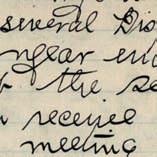 several Dis
year en
the se
receive
meeting